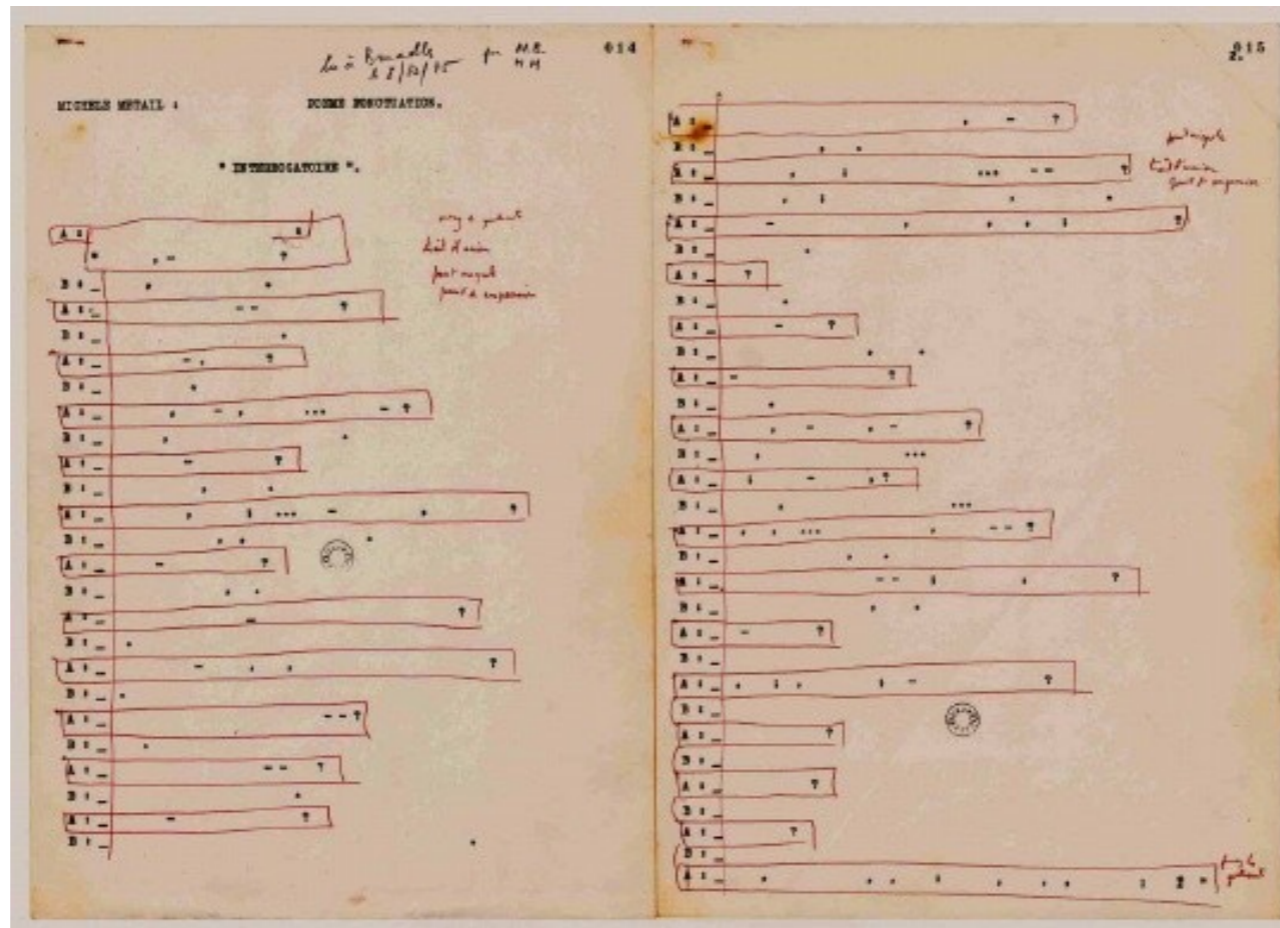 lu à Bruxelles par M.M.
le 8/12/75
014
MICHELE METAIL : POEME PONCTUATION.
" INTERROGATOIRE ".
A : "
" , - ?
trait d'union
point virgule
point de suspension
B : _ , .
A : _ - - ?
B : _ .
A : _ - , ?
B : _ .
A : _ , - , ... - ?
B : _ , .
A : _ - ?
B : _ , .
A : _ , ; ... - , ?
B : _ , , .
A : _ - ?
B : _ , .
A : _ - ?
B : _ .
A : _ - , , ?
B : _ .
A : _ - - ?
B : _ .
A : _ - - ?
B : _ .
A : _ - ?
B : _ .
015
2.
A : , - ?
point virgule
B : _ , .
trait d'union
point de suspension
A : _ , ; ... - - ?
B : _ , ; , .
A : _ - , , , ; ?
B : _ .
A : _ ?
B : _ .
A : _ - ?
B : _ , .
A : _ - ?
B : _ .
A : _ , - , - ?
B : _ , ...
A : _ ; - , ?
B : _ , ...
A : _ , , ... , - - ?
B : _ , .
A : _ - - ; , ?
B : _ , .
A : _ - ?
B : _
A : _ , ; , ; - ?
B : _
A : _ ?
B : _
A : _ ?
B : _
A : _ ?
B : _
A : _ , , , ; , , , : "